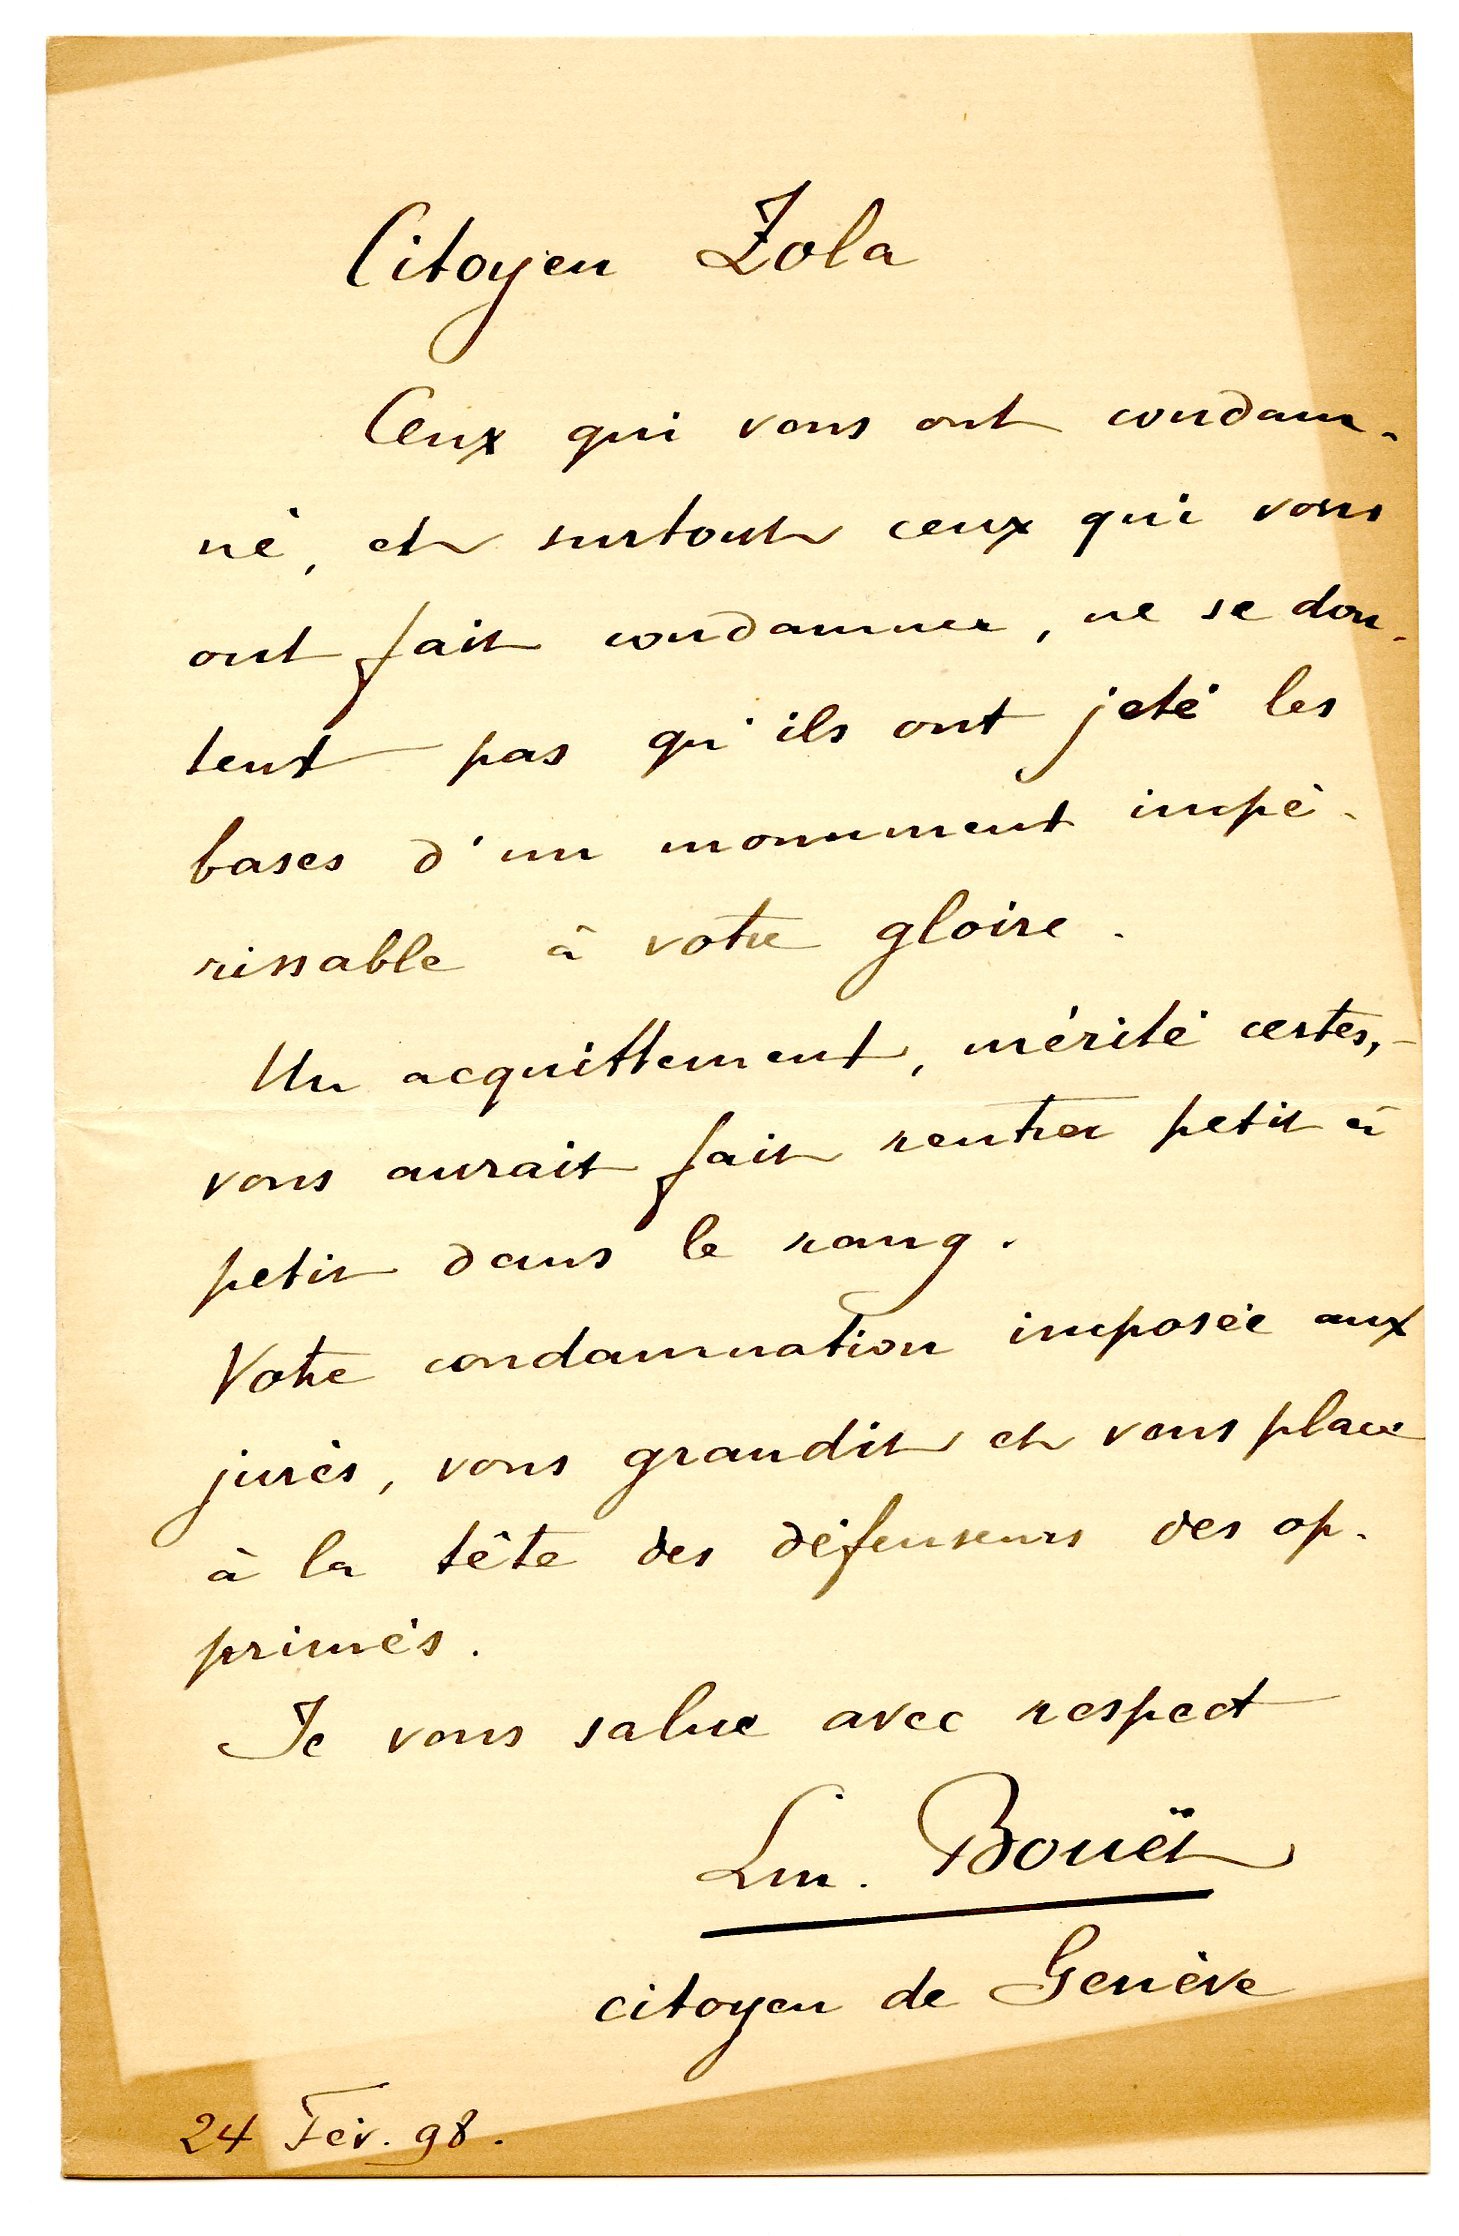 Citoyen Zola
Ceux qui vous ont condam-
né, et surtout ceux qui vous
ont fait condamner, ne se dou-
tent pas qu'ils ont jeté les
bases d'un monument impé-
rissable à votre gloire.
Un acquittement, mérité certes,-
vous aurait fait rentrer petit à
petit dans le rang.
Votre condamnation imposée aux
jurés, vous grandit et vous place
à la tête des défenseurs des op-
primés.
Je vous salue avec respect
Bouët
citoyen de Genève
24 Fév. 98.